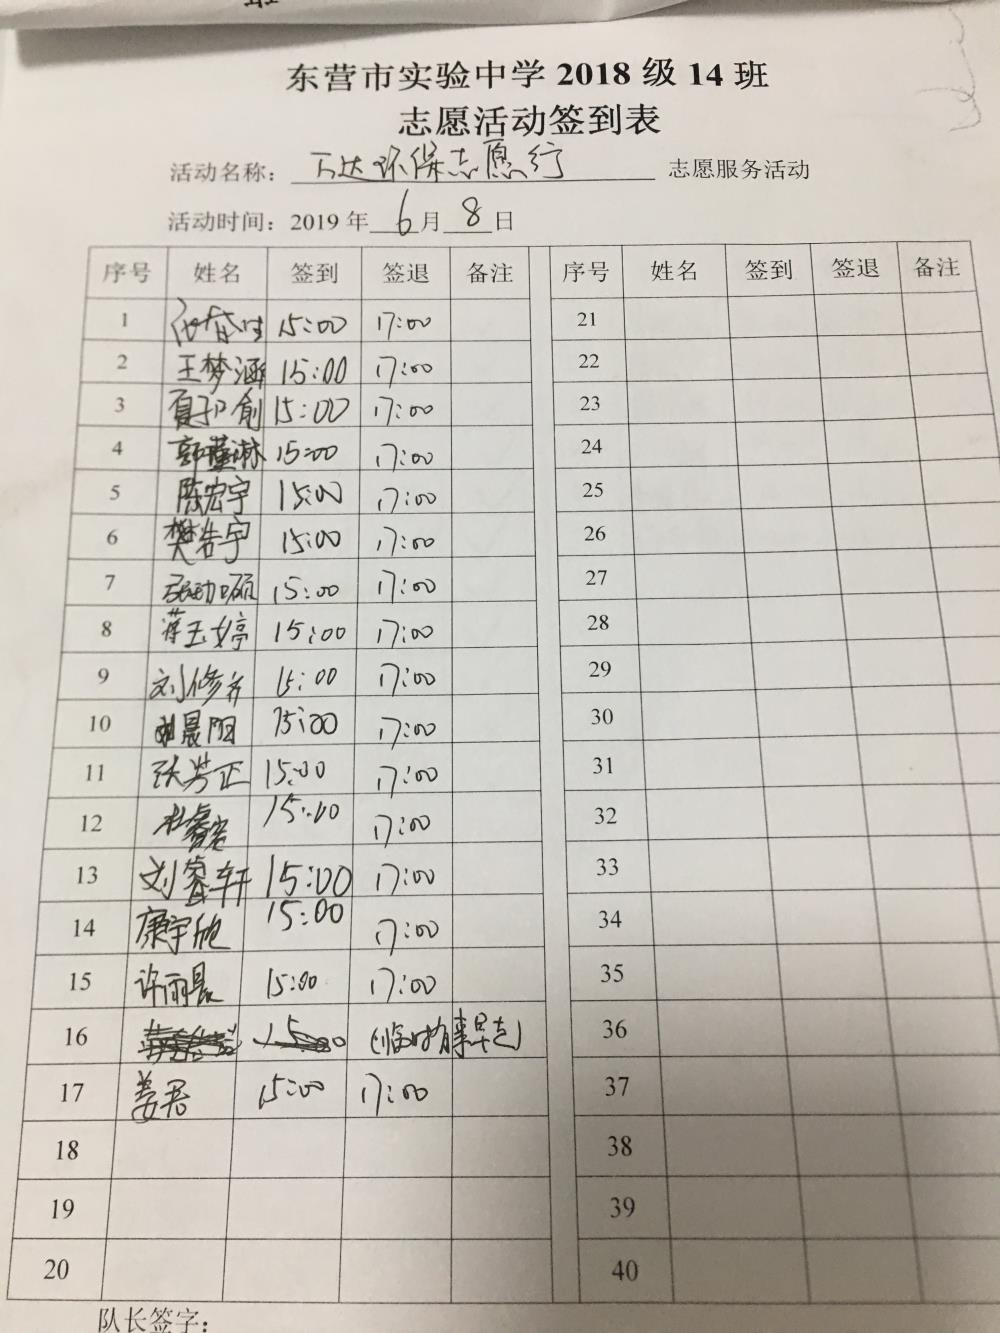 东营市实验中学 2018 级 14 班
志愿活动签到表
活动名称： 万达环保志愿行 志愿服务活动
活动时间：2019 年 6 月 8 日
序号 姓名 签到 签退 备注 序号 姓名 签到 签退 备注
1 15:00 17:00 21
2 王梦涵 15:00 17:00 22
3 15:00 17:00 23
4 郭瑾淋 15:00 17:00 24
5 陈宏宇 15:00 17:00 25
6 樊浩宇 15:00 17:00 26
7 15:00 17:00 27
8 蒋玉婷 15:00 17:00 28
9 刘修齐 15:00 17:00 29
10 刘晨阳 15:00 17:00 30
11 张芳正 15:00 17:00 31
12 杜睿宏 15:00 17:00 32
13 刘睿轩 15:00 17:00 33
14 康宇欣 15:00 17:00 34
15 许雨晨 15:00 17:00 35
16 (临时有事早走) 36
17 姜君 15:00 17:00 37
18 38
19 39
20 40
队长签字：